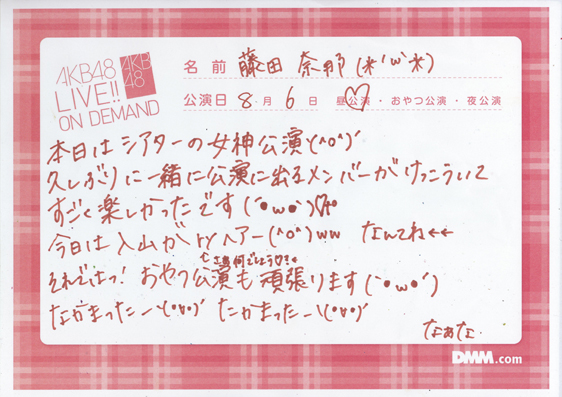 AKB48
LIVE!!
ON DEMAND
AKB
48
名前 藤田 奈那(*'ω'*)
公演日 8月 6日 昼公演・おやつ公演・夜公演
本日はシアターの女神公演\(^o^)/
久しぶりに一緒に公演に出るメンバーがけっこういて
すごく楽しかったです(´•ω•`)♡
今日は入山がryヘアー(^o^)ww なんてね←←
それではっ! おやつ公演も頑張ります(`•ω•´)
なかまったー\(•∀•)/ たかまったー\(•∀•)/
なぁな
DMM.com